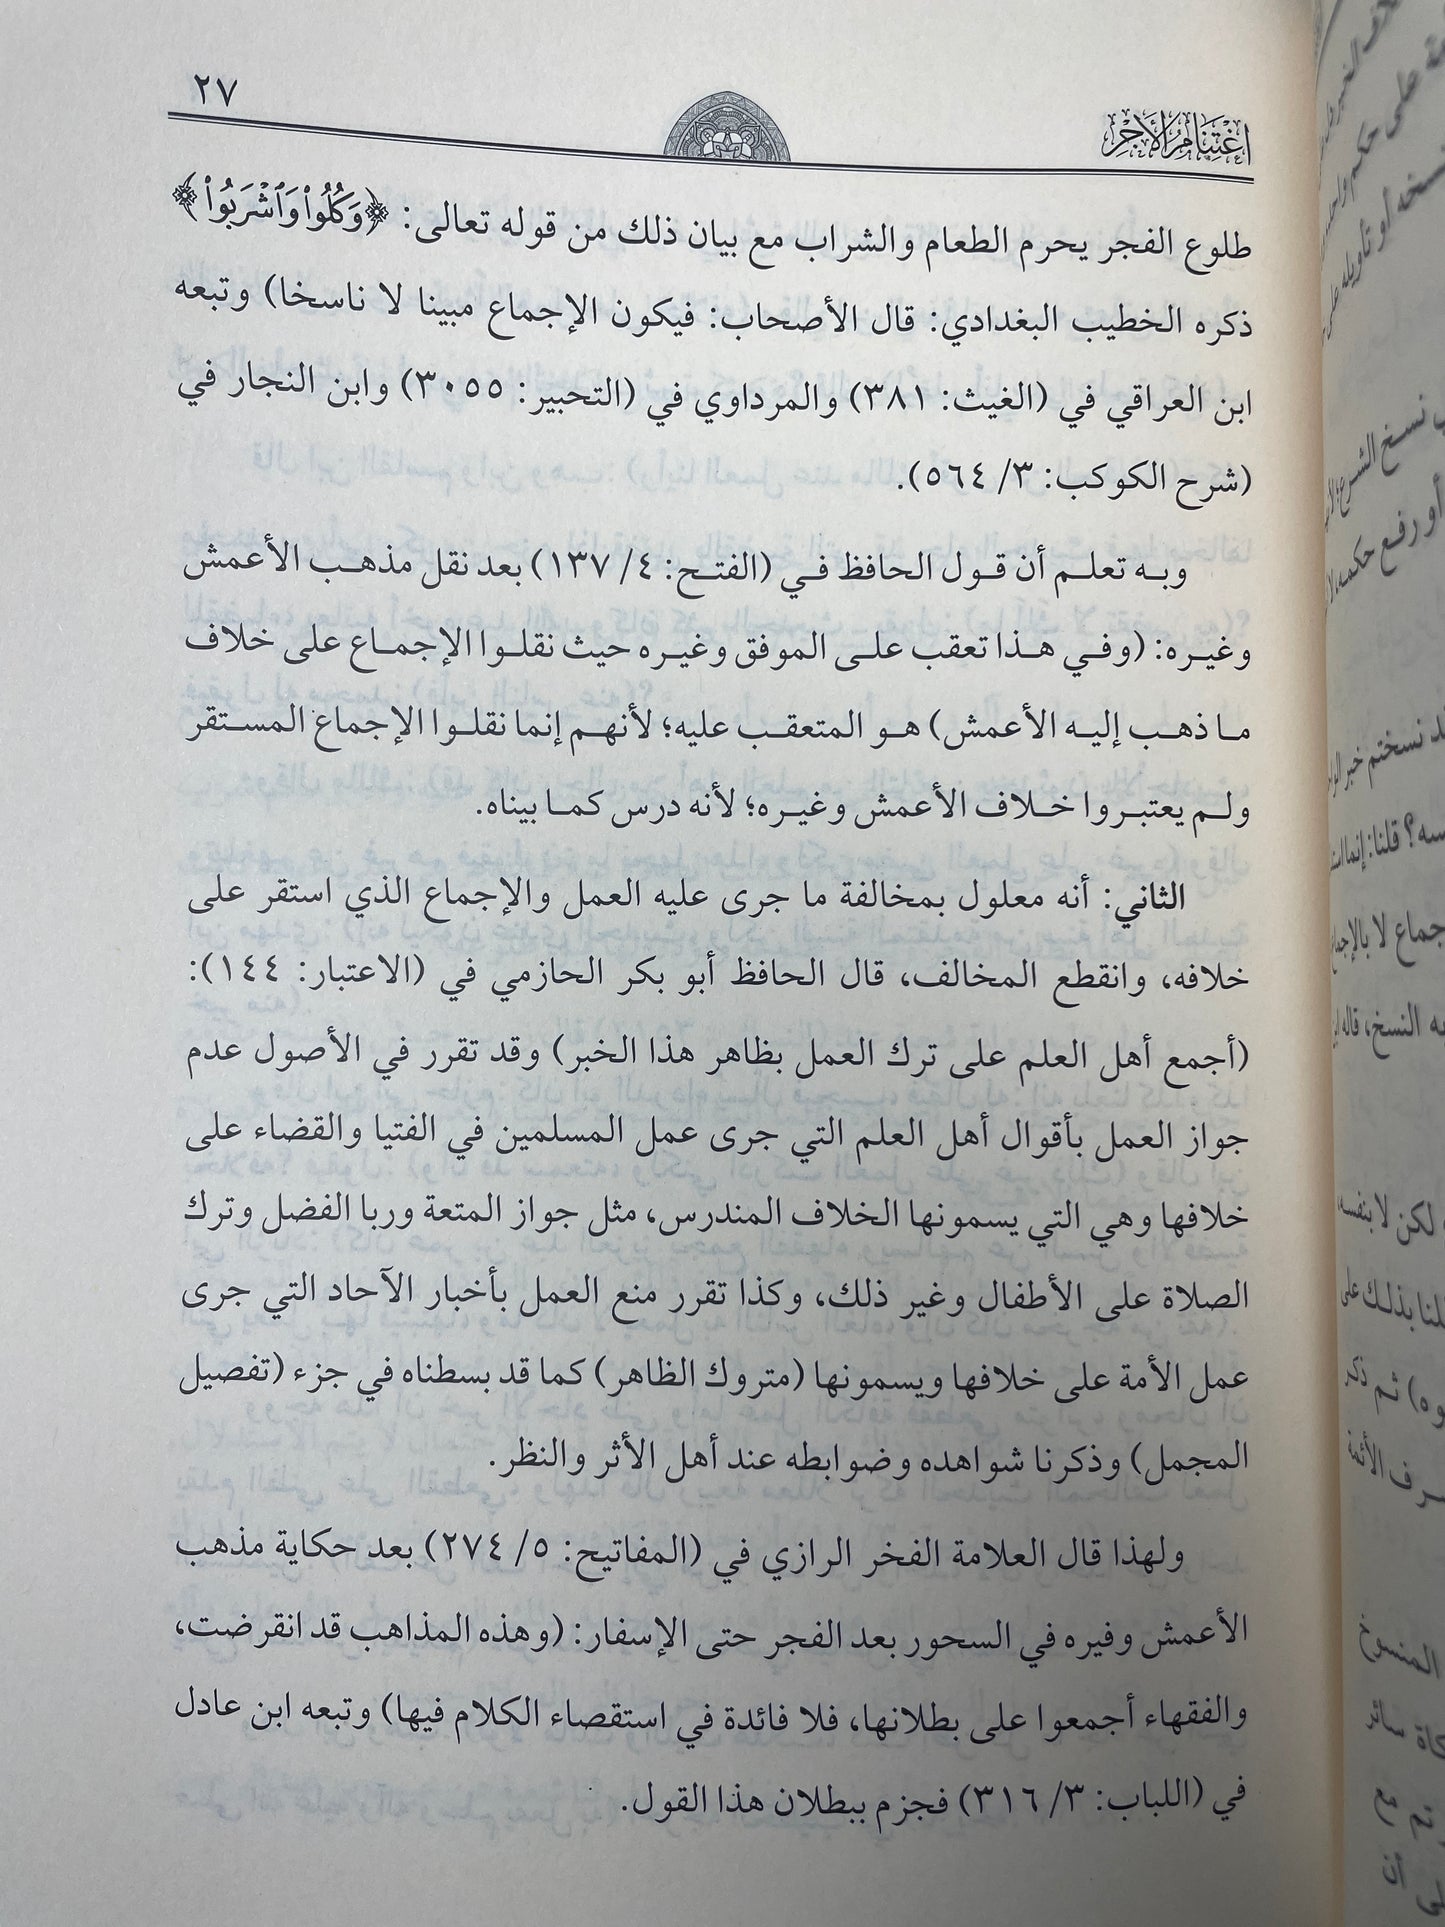 ٢٧
اغْتِنَامُ الْأَجْرِ
طلوع الفجر يحرم الطعام والشراب مع بيان ذلك من قوله تعالى: ﴿وَكُلُوا۟ وَٱشْرَبُوا۟﴾
ذكره الخطيب البغدادي: قال الأصحاب: فيكون الإجماع مبينا لا ناسخا) وتبعه
ابن العراقي في (الغيث: ٣٨١) والمرداوي في (التحبير: ٣٠٥٥) وابن النجار في
(شرح الكوكب: ٣/ ٥٦٤).
وبه تعلم أن قول الحافظ في (الفتح: ٤/ ١٣٧) بعد نقل مذهب الأعمش
وغيره: (وفي هذا تعقب على الموفق وغيره حيث نقلوا الإجماع على خلاف
ما ذهب إليه الأعمش) هو المتعقب عليه؛ لأنهم إنما نقلوا الإجماع المستقر
ولم يعتبروا خلاف الأعمش وغيره؛ لأنه درس كما بيناه.
الثاني: أنه معلول بمخالفة ما جرى عليه العمل والإجماع الذي استقر على
خلافه، وانقطع المخالف، قال الحافظ أبو بكر الحازمي في (الاعتبار: ١٤٤):
(أجمع أهل العلم على ترك العمل بظاهر هذا الخبر) وقد تقرر في الأصول عدم
جواز العمل بأقوال أهل العلم التي جرى عمل المسلمين في الفتيا والقضاء على
خلافها وهي التي يسمونها الخلاف المندرس، مثل جواز المتعة وربا الفضل وترك
الصلاة على الأطفال وغير ذلك، وكذا تقرر منع العمل بأخبار الآحاد التي جرى
عمل الأمة على خلافها ويسمونها (متروك الظاهر) كما قد بسطناه في جزء (تفصيل
المجمل) وذكرنا شواهده وضوابطه عند أهل الأثر والنظر.
ولهذا قال العلامة الفخر الرازي في (المفاتيح: ٥/ ٢٧٤) بعد حكاية مذهب
الأعمش وفيره في السحور بعد الفجر حتى الإسفار: (وهذه المذاهب قد انقرضت،
والفقهاء أجمعوا على بطلانها، فلا فائدة في استقصاء الكلام فيها) وتبعه ابن عادل
في (اللباب: ٣/ ٣١٦) فجزم ببطلان هذا القول.